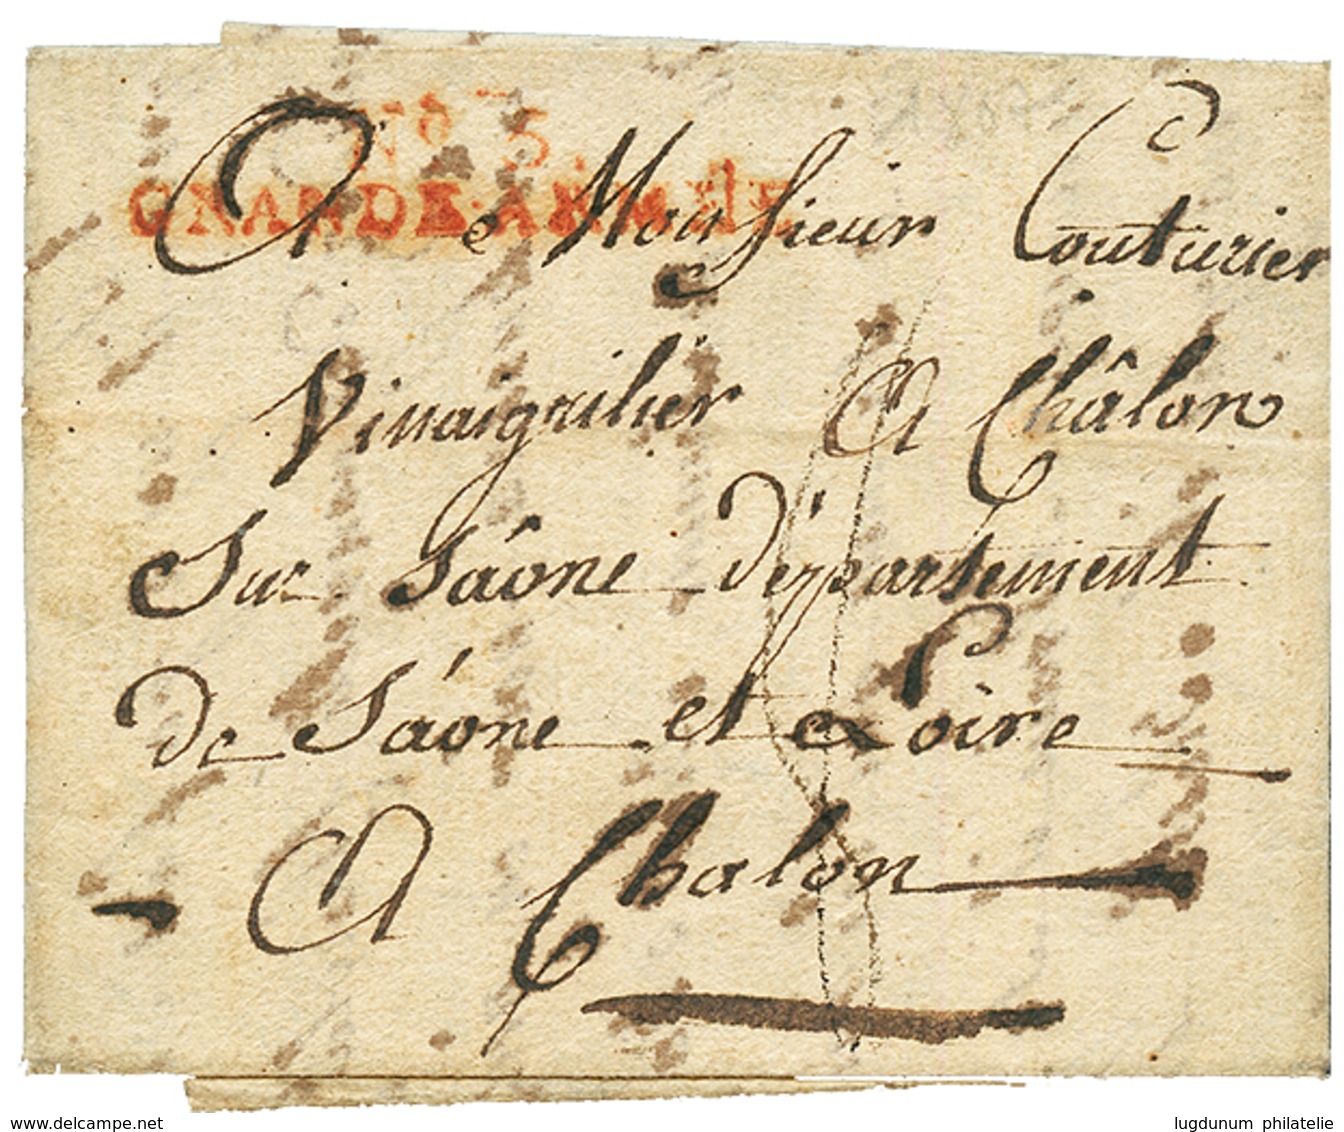 N° 5.
GRANDE-ARMÉE
A Monsieur Couturier
Vinaigrilier A Châlon
Sur Sáone département
De Sáone et Loire
A Chalon
www.delcampe.net
lugdunum philatelie